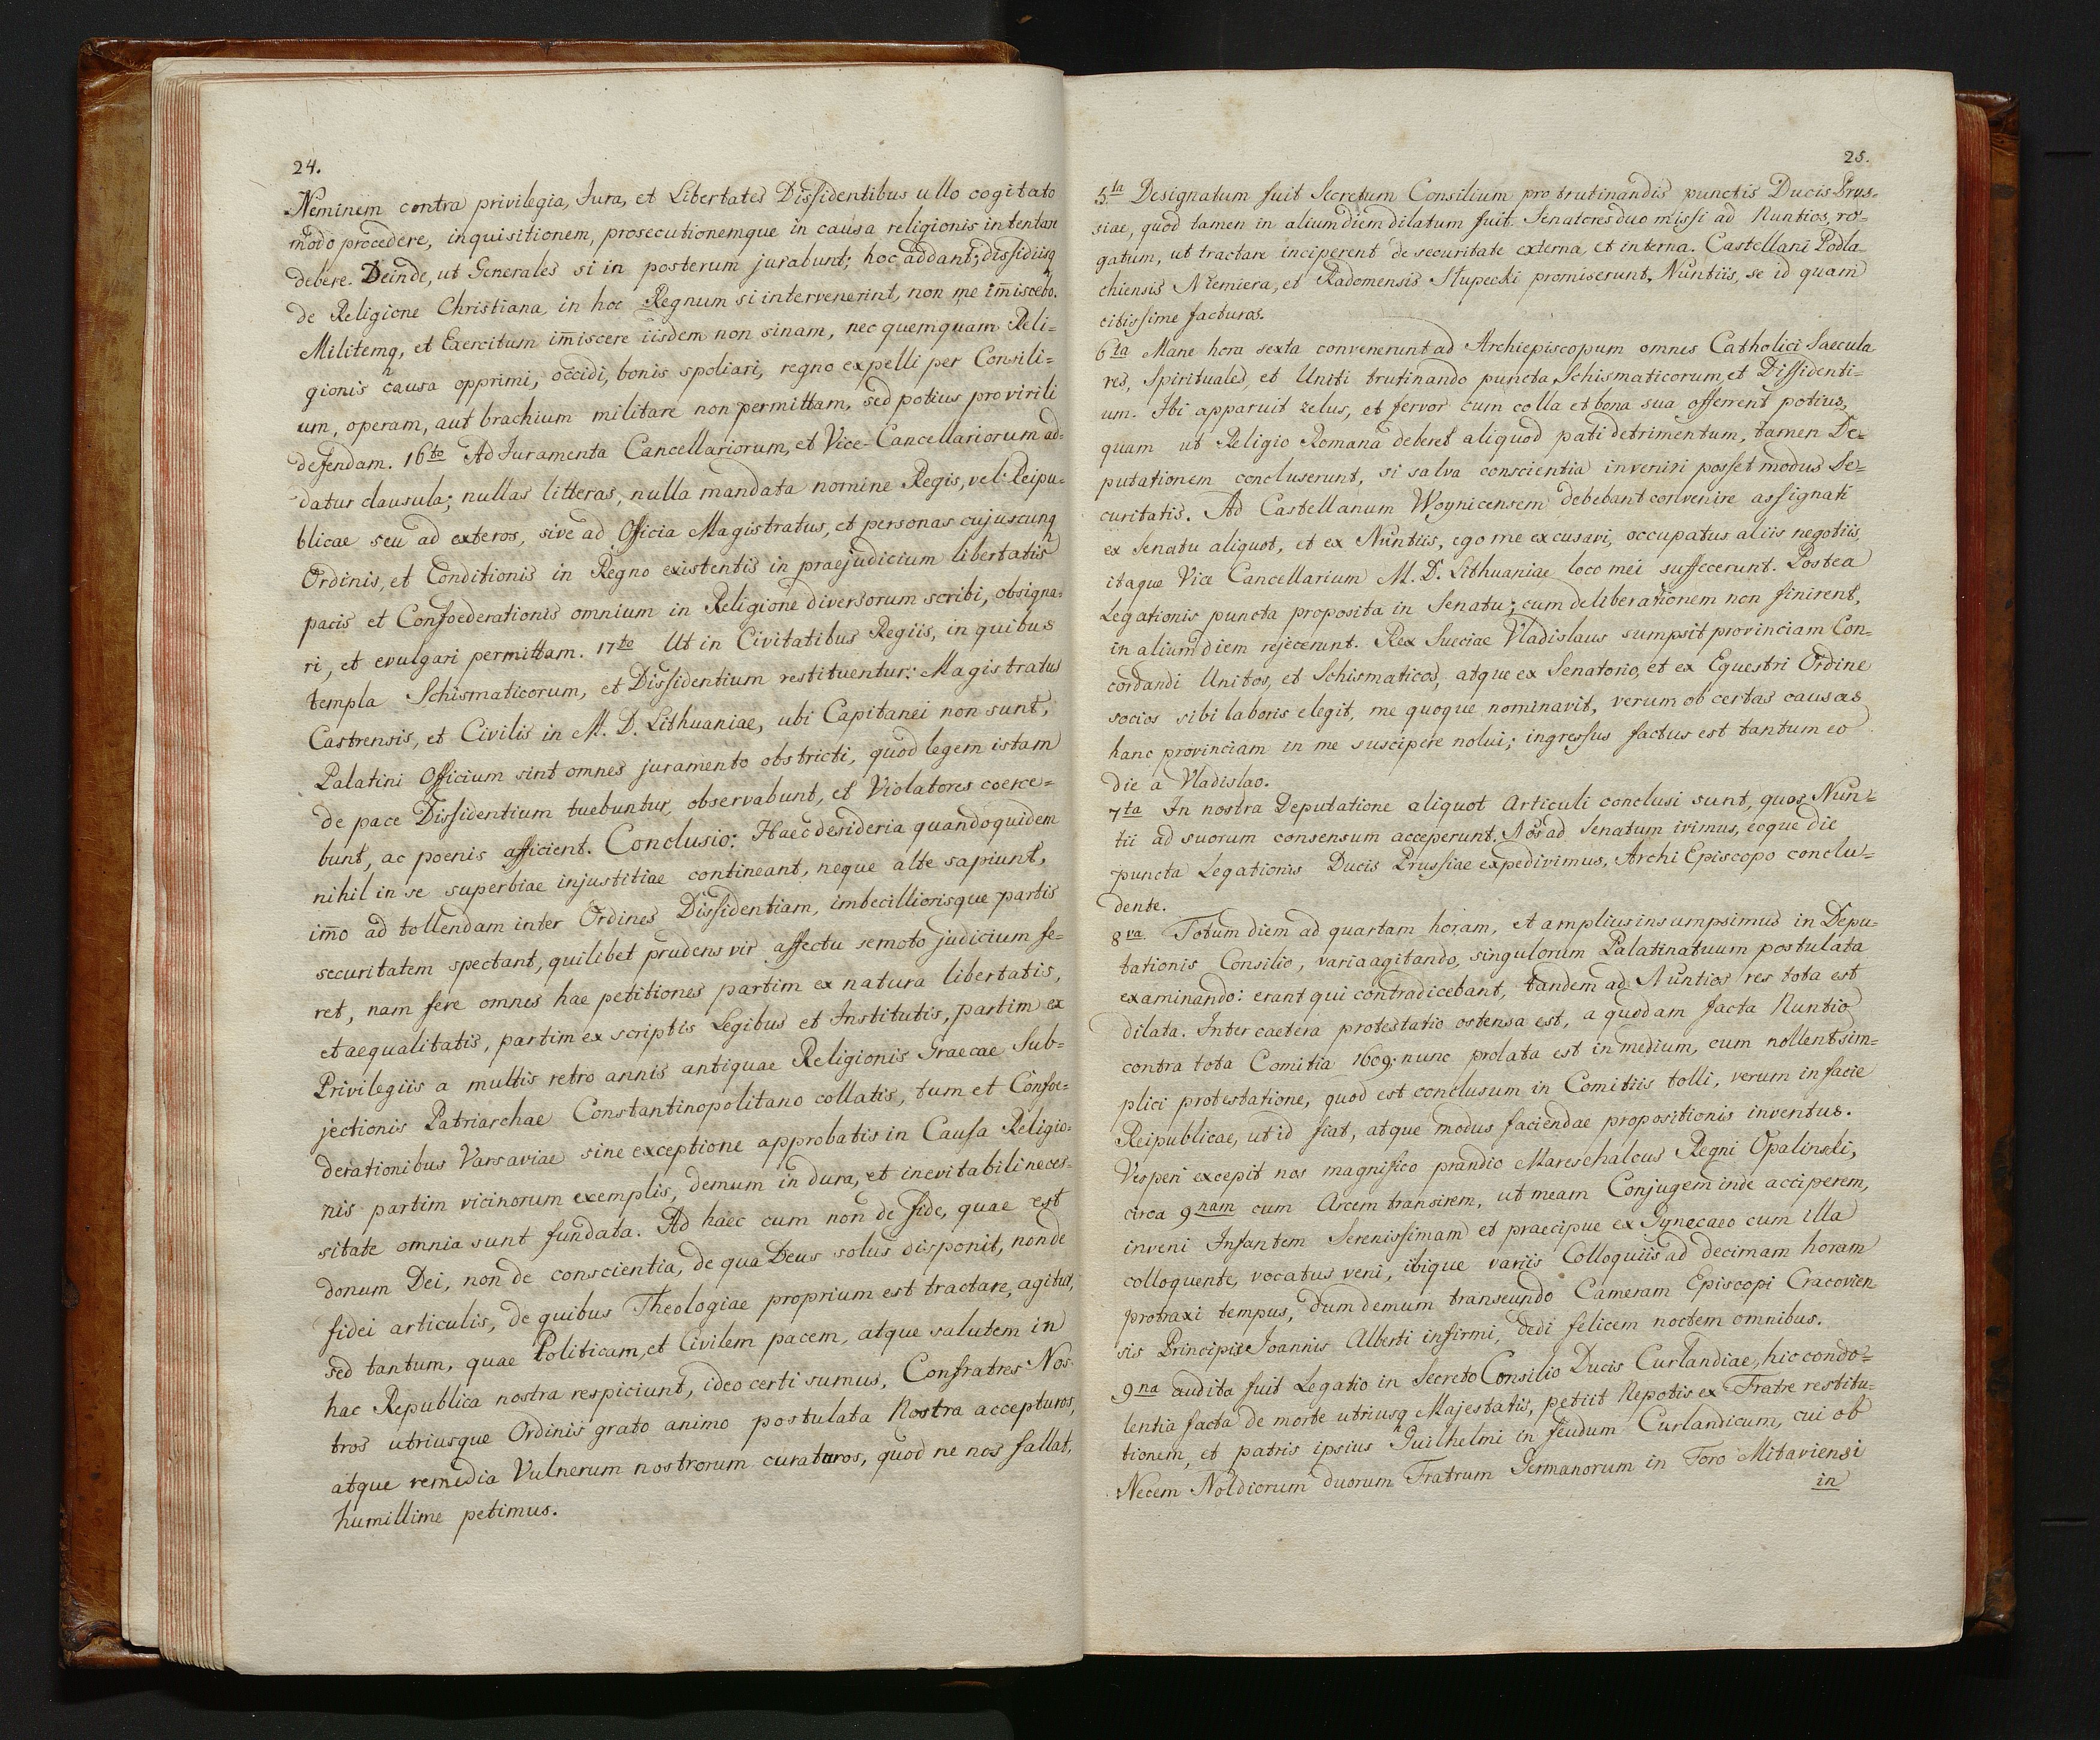 24.
Neminem contra privilegia, Jura, et Libertates Dissidentibus ullo cogitato
modo procedere, inquisitionem, prosecutionemque in causa religionis intentare
debere. Deinde, ut Generales si in posterum jurabunt; hoc addant; dissidiisq
de Religione Christiana in hoc Regnum si intervenerint, non me im̄iscebo.
Militemq, et Exercitum im̄iscere iisdem non sinam, nec quemquam Reli=
gionis causa opprimi, occidi, bonis spoliari, regno expelli per Consili=
um, operam, aut brachium militare non permittam, sed potius pro virili
defendam. 16to Ad Juramenta Cancellariorum, et Vice-Cancellariorum ad=
datur clausula; nullas litteras, nulla mandata nomine Regis, vel Reipu=
blicae seu ad exteros, sive ad Officia Magistratus, et personas cujuscunq
Ordinis, et Conditionis in Regno existentis in praejudicium libertatis
pacis et Confoederationis omnium in Religione diversorum scribi, obsigna=
ri, et evulgari permittam. 17to Ut in Civitatibus Regiis, in quibus
templa Schismaticorum, et Dissidentium restituentur: Magistratus
Castrensis, et Civilis in M. D. Lithuaniae, ubi Capitanei non sunt,
Palatini Officium sint omnes juramento obstricti, quod legem istam
de pace Dissidentium tuebuntur, observabunt, et Violatores coerce=
bunt, ac poenis afficient. Conclusio: Haec desideria quandoquidem
nihil in se superbiae injustitiae contineant, neque alte sapiunt,
im̄o ad tollendam inter Ordines Dissidentiam, imbecilliorisque partis
securitatem spectant, quilibet prudens vir affectu semoto judicium fe=
ret, nam fere omnes hae petitiones partim ex natura libertatis,
et aequalitatis, partim ex scriptis Legibus et Institutis, partim ex
Privilegiis a multis retro annis antiquae Religionis Graecae Sub=
jectionis Patriarchae Constantinopolitano collatis, tum et Confoe=
derationibus Varsaviae sine exceptione approbatis in Causa Religio=
nis partim vicinorum exemplis, demum in dura, et inevitabili neces=
sitate omnia sunt fundata. Ad haec cum non de fide, quae est
donum Dei, non de conscientia, de qua Deus solus disponit, non de
fidei articulis, de quibus Theologiae proprium est tractare, agitur,
sed tantum, quae Politicam, et Civilem pacem, atque salutem in
hac Republica nostra respiciunt, ideo certi sumus, Confratres Nos=
tros utriusque Ordinis grato animo postulata Nostra accepturos,
atque remedia Vulnerum nostrorum curaturos, quod ne nos fallat,
humillime petimus.
25.
5ta Designatum fuit Secretum Consilium pro trutinandis punctis Ducis Prus=
siae, quod tamen in alium diem dilatum fuit. Senatores duo missi ad Nuntios, ro=
gatum, ut tractare inciperent de securitate externa, et interna. Castellani Podla
chiensis Niemiera, et Radomensis Słupecki promiserunt, Nuntiis, se id quam
citissime facturos.
6ta Mane hora sexta convenerunt ad Archiepiscopum omnes Catholici Saecula
res, Spirituales, et Uniti trutinando puncta Schismaticorum, et Dissidenti=
um. Ibi apparuit zelus, et fervor cum colla et bona sua offerrent potius,
quam ut Religio Romana deberet aliquod pati detrimentum, tamen De=
putationem concluserunt, si salva conscientia inveniri posset modus Se=
curitatis. Ad Castellanum Woynicensem debebant convenire assignati
ex Senatu aliquot, et ex Nuntiis, ego me excusavi, occupatus aliis negotiis,
itaque Vice Cancellarium M. D. Lithuaniae loco mei suffecerunt. Postea
Legationis puncta proposita in Senatu; cum deliberationem non finirent,
in alium diem rejecerunt. Rex Sueciae Vladislaus sumpsit provinciam Con=
cordandi Unitos, et Schismaticos, atque ex Senatorio, et ex Equestri Ordine
socios sibi laboris elegit, me quoque nominavit, verum ob certas causas
hanc provinciam in me suscipere nolui; ingressus factus est tantum eo
die a Vladislao.
7ta In nostra Deputatione aliquot Articuli conclusi sunt, quos Nun=
tii ad suorum consensum acceperunt. Nos ad Senatum ivimus, eoque die
puncta Legationis Ducis Prussiae expedivimus, Archi Episcopo conclu=
dente.
8va Totum diem ad quartam horam, et amplius insumpsimus in Depu=
tationis Consilio, varia agitando, singulorum Palatinatuum postulata
examinando: erant qui contradicebant, tandem ad Nuntios res tota est
dilata. Inter caetera protestatio ostensa est, a quodam facta Nuntio
contra tota Comitia 1609; nunc prolata est in medium, cum nollent sim=
plici protestatione, quod est conclusum in Comitiis tolli, verum in facie
Reipublicae, ut id fiat, atque modus faciendae propositionis inventus.
Vesperi excepit nos magnifico prandio Mareschalcus Regni Opalinski,
circa 9nam cum Arcem transirem, ut meam Conjugem inde acciperem,
inveni Infantem Serenissimam et praecipue ex Gynecaeo cum illa
colloquente, vocatus veni, ibique variis Colloquiis ad decimam horam
protraxi tempus, dum demum transeundo Cameram Episcopi Cracovien
sis Principis Joannis Alberti infirmi, dedi felicem noctem omnibus.
9na audita fuit Legatio in Secreto Consilio Ducis Curlandiae, hic condo=
lentia facta de morte utriusq Majestatis, petiit Nepotis ex Fratre restitu=
tionem, et patris ipsius Guilhelmi in feudum Curlandicum, cui ob
Necem Noldiorum duorum Fratrum Germanorum in Foro Mitaviensi
in